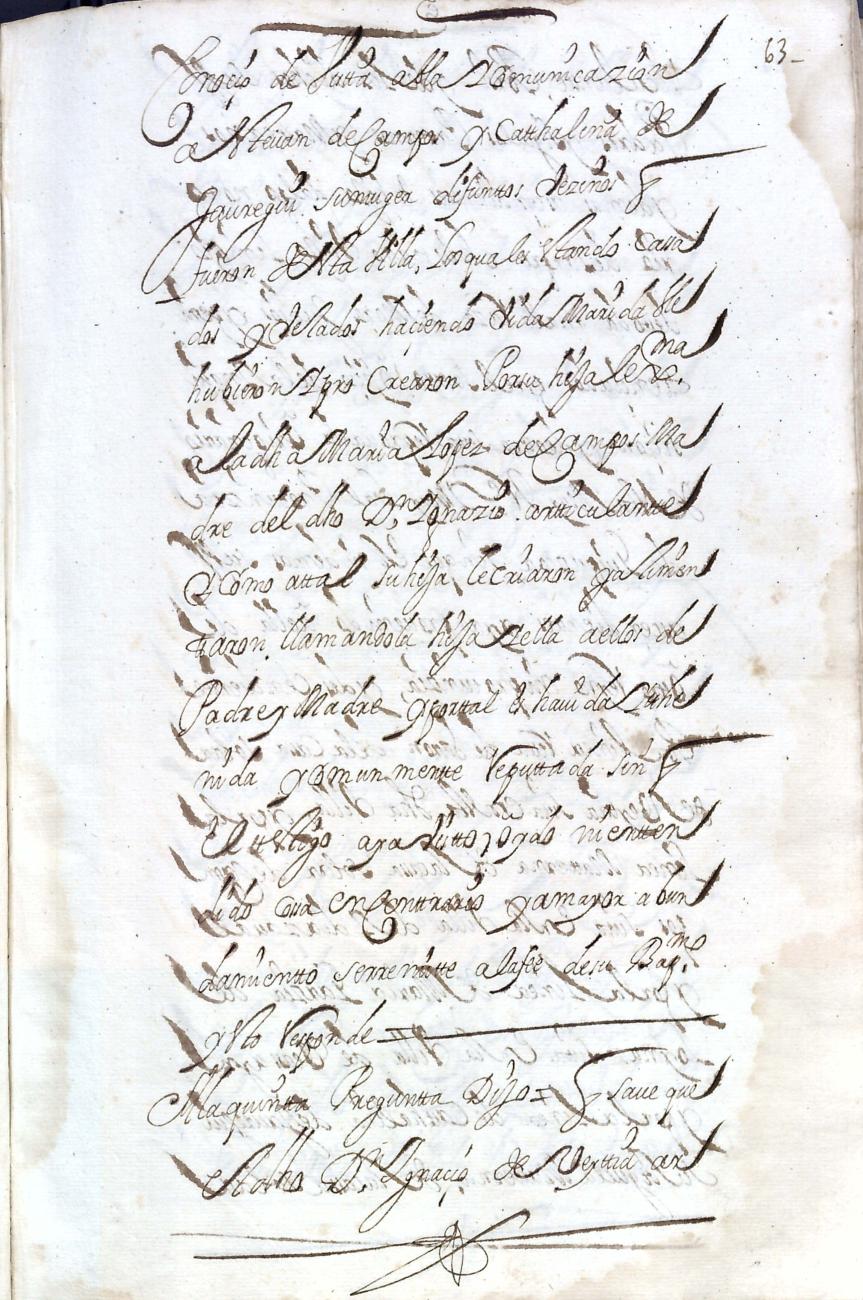 63
Conoció de Vista abla Comunicazion
a Steuan de Campos y Catthalina de
Jauregui su muger difuntos Vezinos
fueron de esta Villa, los quales estando Cassa
dos y Velados haciendo Vida Maridable
hubieron y Pro Crearon Por su hija lexma
a la dha Maria Lopez de Campos Ma
dre del dho Dn Ignazio artticulantte
y Como atta l su hija, le criaron y alimen
taron llamandola hija y ella a ellos de
Padre y Madre y por tal es hauida y the
nida y Comun mentte Reputtada sin
El testigo aya Vistto, oydo ni entten
dido Cossa en Conttrario y a mayor abun
damientto se rremitte a la fee de su Bapmo
y esto Responde =
A la quintta Preguntta Dijo = Saue que
el dho Dn Ignacio de Verttiz ar